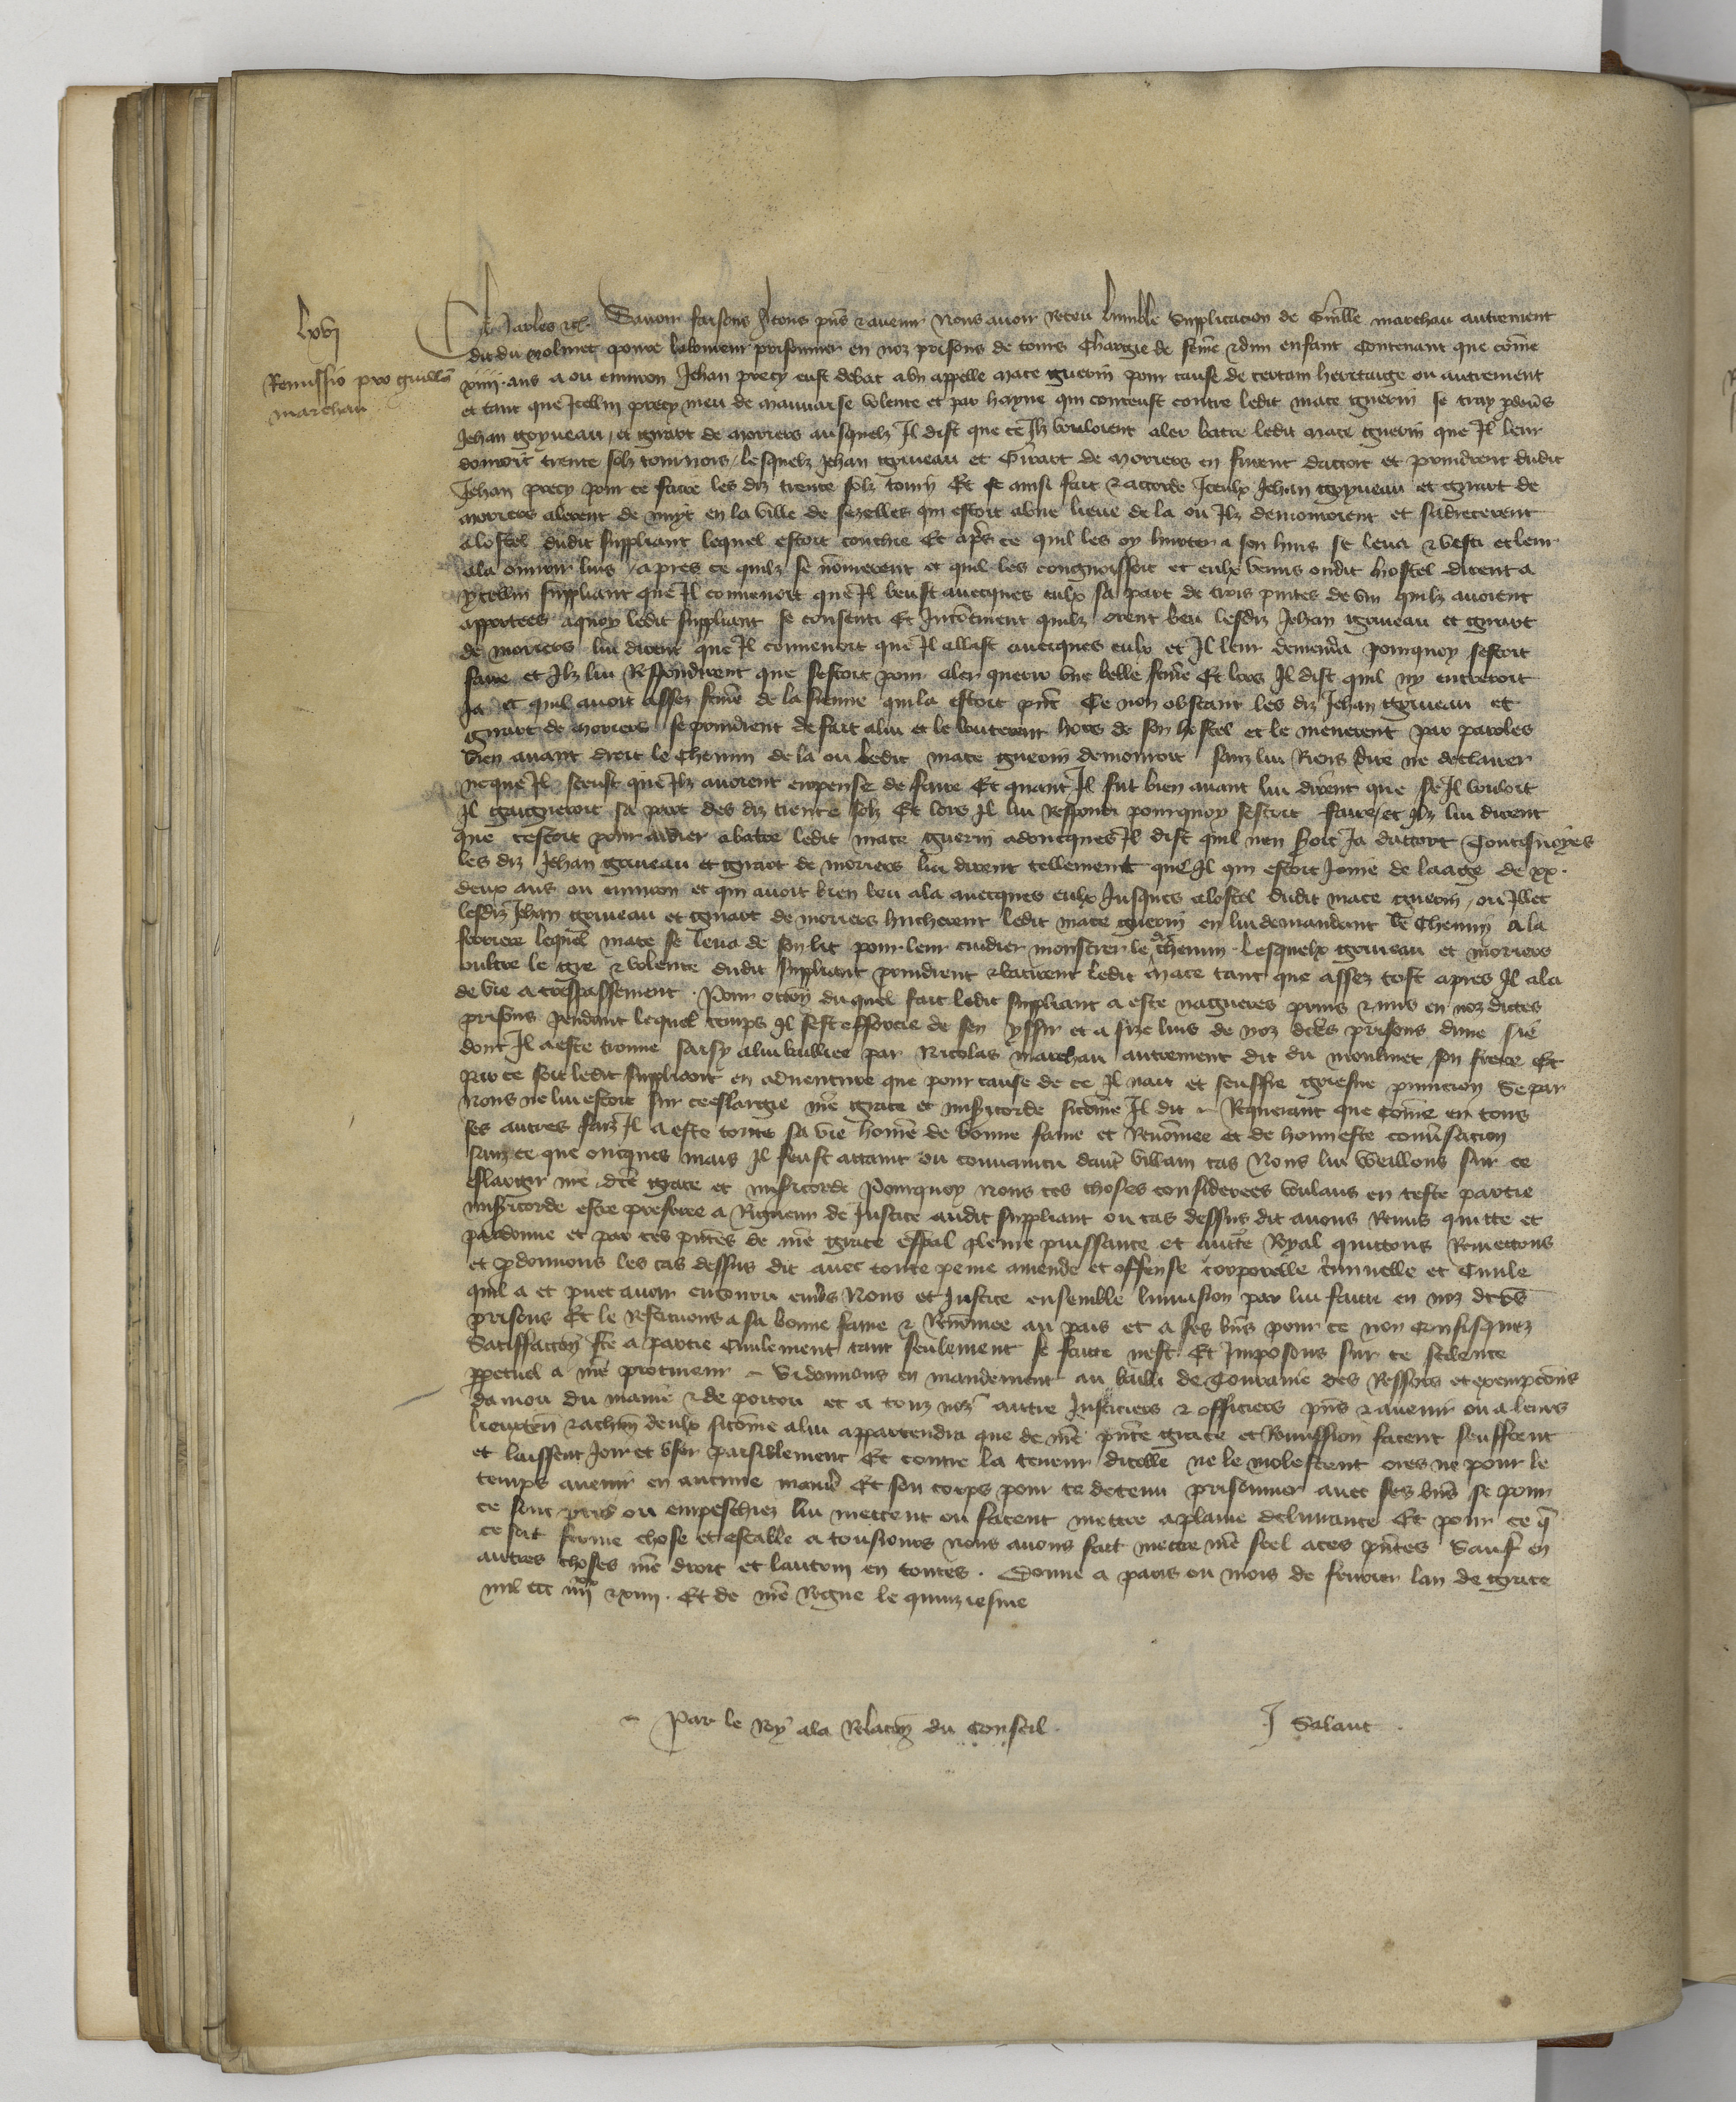 lxvi
Remissio pro guillo
marchau
Charles etc. Savoir faisons a tous pns et avenir Nous avoir receu humble supplicacion de Guille marchau autrement
dit du molinet povre laboureur prisonnier en noz prisons de tours chargie de feme et dun enfant contenant que come
xiiii ans a ou environ Jehan precy eust debat a un appelle mace guerin pour cause de certain heritaige ou autrement
et tant que Icellui precy meu de mauvaise volente et par hayne qui conceust contre ledit mace guerin se tray
Jehan goyveau et girart de moriers ausquelz Il dist que se Ilz vouloient aler batre ledit mace guerin que Il leur
donroit trente solz tournois lesquelz Jehan goiveau et Girart de moriers en furent dacort et prindrent dudit
Jehan precy pour ce faire les diz trente solz tourn Et ce ainsi fait et accorde Iceulx Jehan goyveau et girart de
moriers alerent de nuyt en la ville de sezelles qui estoit a une lieue de la ou Ilz demouroient et sadrecerent
a lostel dudit suppliant lequel estoit couchie Et aprs ce quil les oy hurter a son huis se leva et vesti et leur
ala ouvrir luis apres ce quilz se nomerent et quil les congnoissoit et eulx venus oudit hostel dirent a
ycellui suppliant que Il convenoit que Il beust avecques eulx sa part de trois pintes de vin quilz avoient
apportees aquoy ledit suppliant se consenti Et Incontinent quilz orent beu lesdiz Jehan goiveau et girart
de moriers lui dirent que Il convenoit que Il allast avecques eulx et Il leur demanda pourquoy sestoit
faire et Ilz lui Respondirent que sestoit pour aler querir une belle feme Et lors Il dist quil ny entreroit
Ja et quil avoit assez feme de la sienne qui la estoit pnt Ce non obstant les diz Jehan goiveau et
girart de moriers se prindrent de fait a lui et le bouterent hors de son hostel et le menerent par paroles
bien avant droit le chemin de la ou ledit mace guerin demouroit sanz lui Riens dire ne declairer
ne que Il sceust que Ilz avoient enpense de faire Et quant Il fut bien avant lui dirent que se Il vouloit
Il gaigneroit sa part des diz trente solz Et lors Il lui respondi pourquoy sestoit faire et Ilz lui dirent
que cestoit pour aidier a batre ledit mace guerin adoncques Il dist quil nen seroit Ja dacort Toutesvoyes
les diz Jehan goiveau et girart de moriers lui dirent tellement que Il qui estoit Joine de laage de xx
deux ans ou environ et qui avoit bien beu ala avecques eulx Jusques a lostel dudit mace guerin ou Illec
lesdiz Jehan goiveau et girart de moriers hucherent ledit mace guerin en lui demandant le chemin a la
ferriere lequel mace se leva de son lit pour leur cuidier monstrer le chemin lesquelx goiveau et moriers
oultre le gre et volente dudit suppliant prindrent et batirent ledit mace tant que assez tost apres Il ala
de vie a trespassement Pour occon duquel fait ledit suppliant a este nagueres prins et mis en noz dictes
prisons pendant lequel temps Il sest efforcie de sen yssir et a sie luis de noz dctes prisons dune sie
dont Il a este trouve saisy a lui bailliee par Nicolas marchau autrement dit du moulinet son frere Et
par ce soit ledit suppliant en aventure que pour cause de ce Il nait et seuffre griesve punicion Se par
nous ne lui estoit sur ce eslargie nre grace et misericorde sicome Il dit Requerant que come en tous
ses autres faiz Il a este toute sa vie home de bonne fame et Renomee et de honneste conversacion
sanz ce que oncques mais Il feust attaint ou convaincu dautre villain cas Nous lui vueillons sur ce
eslargir nre dce grace et misericorde Pourquoy nous ces choses considerees voulans en ceste partie
misericorde estre preferee a Rigueur de Justice audit suppliant ou cas dessus dit avons Remis quitte et
pardonne et par ces pntes de nre grace espal pleine puissance et aucte Royal quittons Remettons
et pdonnons les cas dessus dit avec toute peine amende et offense corporelle criminelle et Civile
quil a et puet avoir encouru envrs Nous et Justice ensemble leruission par lui faicte en noz dctes
prisons Et le Restituons a sa bonne fame et Renomee au pais et a ses bns pour ce non confisquez
Satisfaccion fte a partie civilement tant seulement se faicte nest Et Imposons sur ce scilence
ppetuel a nre procureur Si donnons en mandement au bailli de Touraine des Ressors et exempcions
danjou du maine et de poitou et a touz noz autre Justiciers et officiers pns et avenir ou a leurs
lieuxten et a chun deulx sicome a lui appartendra que de nre pnte grace et Remission facent seuffrent
et laissent Joir et user paisiblement Et contre la teneur dicelle ne le molestent ores ne pour le
temps avenir en aucune manre Et son corps pour ce detenu prisonnier avec ses bns se pour
ce sont pris ou empeschiez lui mettent ou facent mettre a plaine delivrance Et pour ce q
ce soit ferme chose et estable a tousjours nous avons fait mettre nre scel a ces pntes Sauf en
autres choses nre droit et lautrui en toutes . Donne a paris ou mois de fevrier lan de grace
mil ccc iiiixx et xiiii . Et de nre Regne le quinziesme
Par le Roy a la Relacon du Conseil . J Salaut .